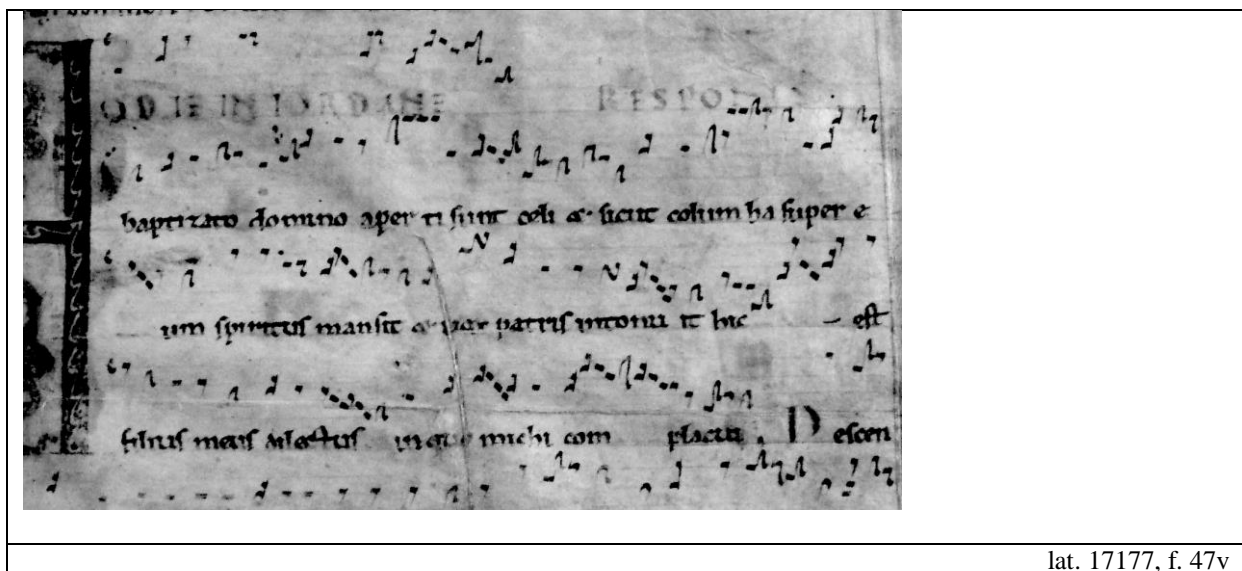 ODIE IN IORDANE RESPO
baptizato domino aper ti sunt celi & sicut colum ba super e
um spiritus mansit & vox patris intonu it hic est
filius meus dilectus in quo michi com placui . Descen
lat. 17177, f. 47v